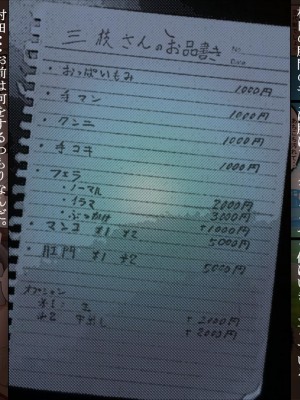 三枝さんのお品書き
No.
Date
・おっぱいもみ 1000円
・手マン 1000円
・クンニ 1000円
・手コキ 1000円
・フェラ
・ノーマル 2000円
・イラマ 3000円
・ぶっかけ +1000円
・マンコ *1 *2 5000円
・肛門 *1 *2 5000円
オプション
*1: 生 +2000円
*2 中出し +2000円
お前は何をするつもりなんだ。